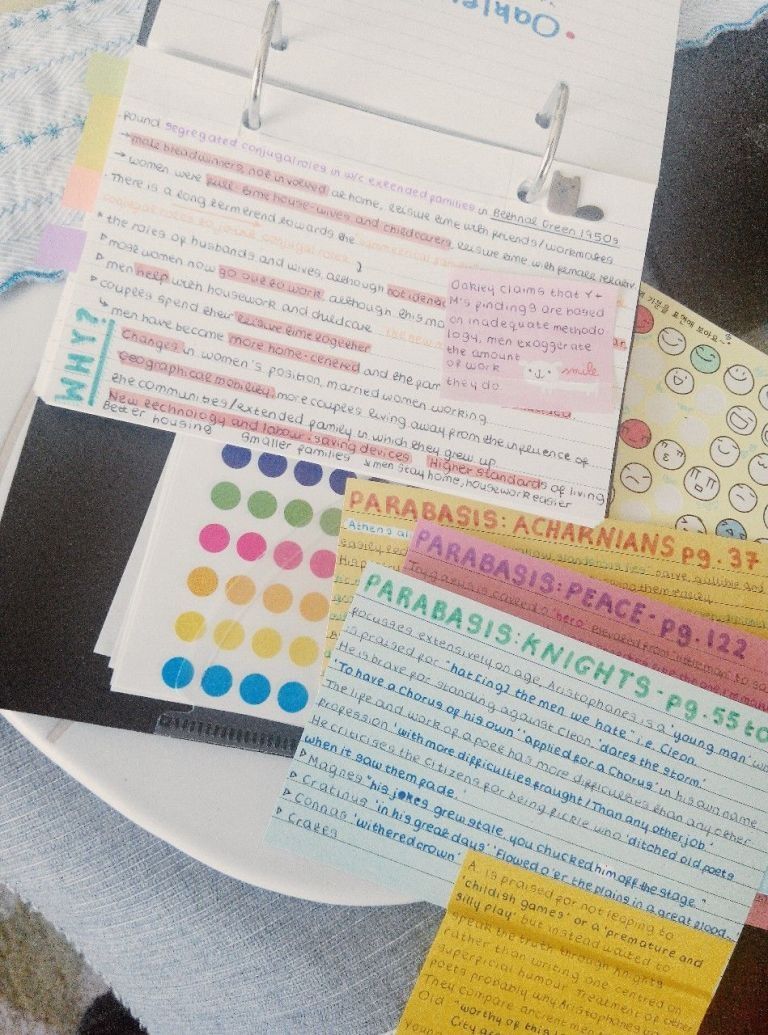 Oakley
• Found segregated conjugal roles in w/c extended families in Bethnal Green 1950s
→ male breadwinners not involved at home, leisure time with friends/workmates
→ women were full-time house-wives and childcarers, leisure time with female relatives
• There is a long term trend towards the
conjugal roles to joint conjugal roles
▸ the roles of husbands and wives, although not
▸ most women now go out to work although this
▸ men help with housework and childcare
▸ couples spend their leisure time together
↳ men have become more home-centered and the
WHY?
Changes in women's position, married women working
Geographical mobility, more couples living away from the influence of
the communities/extended family in which they grew up
New technology and labour-saving devices. Higher standards of living
Better housing smaller families ↳ men stay home, housework easier
Oakley claims that Y+
W's findings are based
on inadequate methodo
logy, men exaggerate
the amount
of work
they do
smile
PARABASIS: ACHARNIANS pg. 37
PARABASIS: PEACE - pg. 122
PARABASIS: KNIGHTS - pg. 55 to
Focusses extensively on age. Aristophanes is a 'young man'
is praised for "hating the men we hate" i.e Cleon
He is brave for standing against Cleon 'dares the storm'
'To have a chorus of his own' 'applied for a chorus' in his own name
The life and work of a poet has more difficulties than any other
profession 'with more difficulties fraught/Than any other job'
He criticises the citizens for being fickle who 'ditched old poets
when it saw them fade'
▸ Magnes "his jokes grew stale, you chucked him off the stage"
▸ Cratinus 'in his great days' 'Flowed o'er the plains in a great flood
▸ Connas 'withered crown'
▸ Crates
A. is praised for not leaping to
'childish games' or a 'premature and
silly play' but instead waited to
speak the truth through Knights
rather than writing one centred on
superficial humour. Treatment of
poets probably why Aristophanes
They compare ancient
Old "worthy of this
City